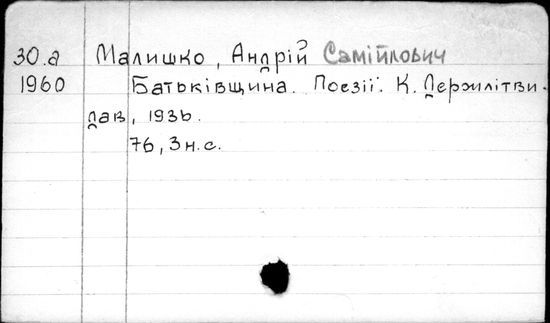 30.а Малишко, Андрій Самійлович
1960 Батьківщина. Поезії. К. Держлітви-
дав, 1936.
76, 3 н. с.